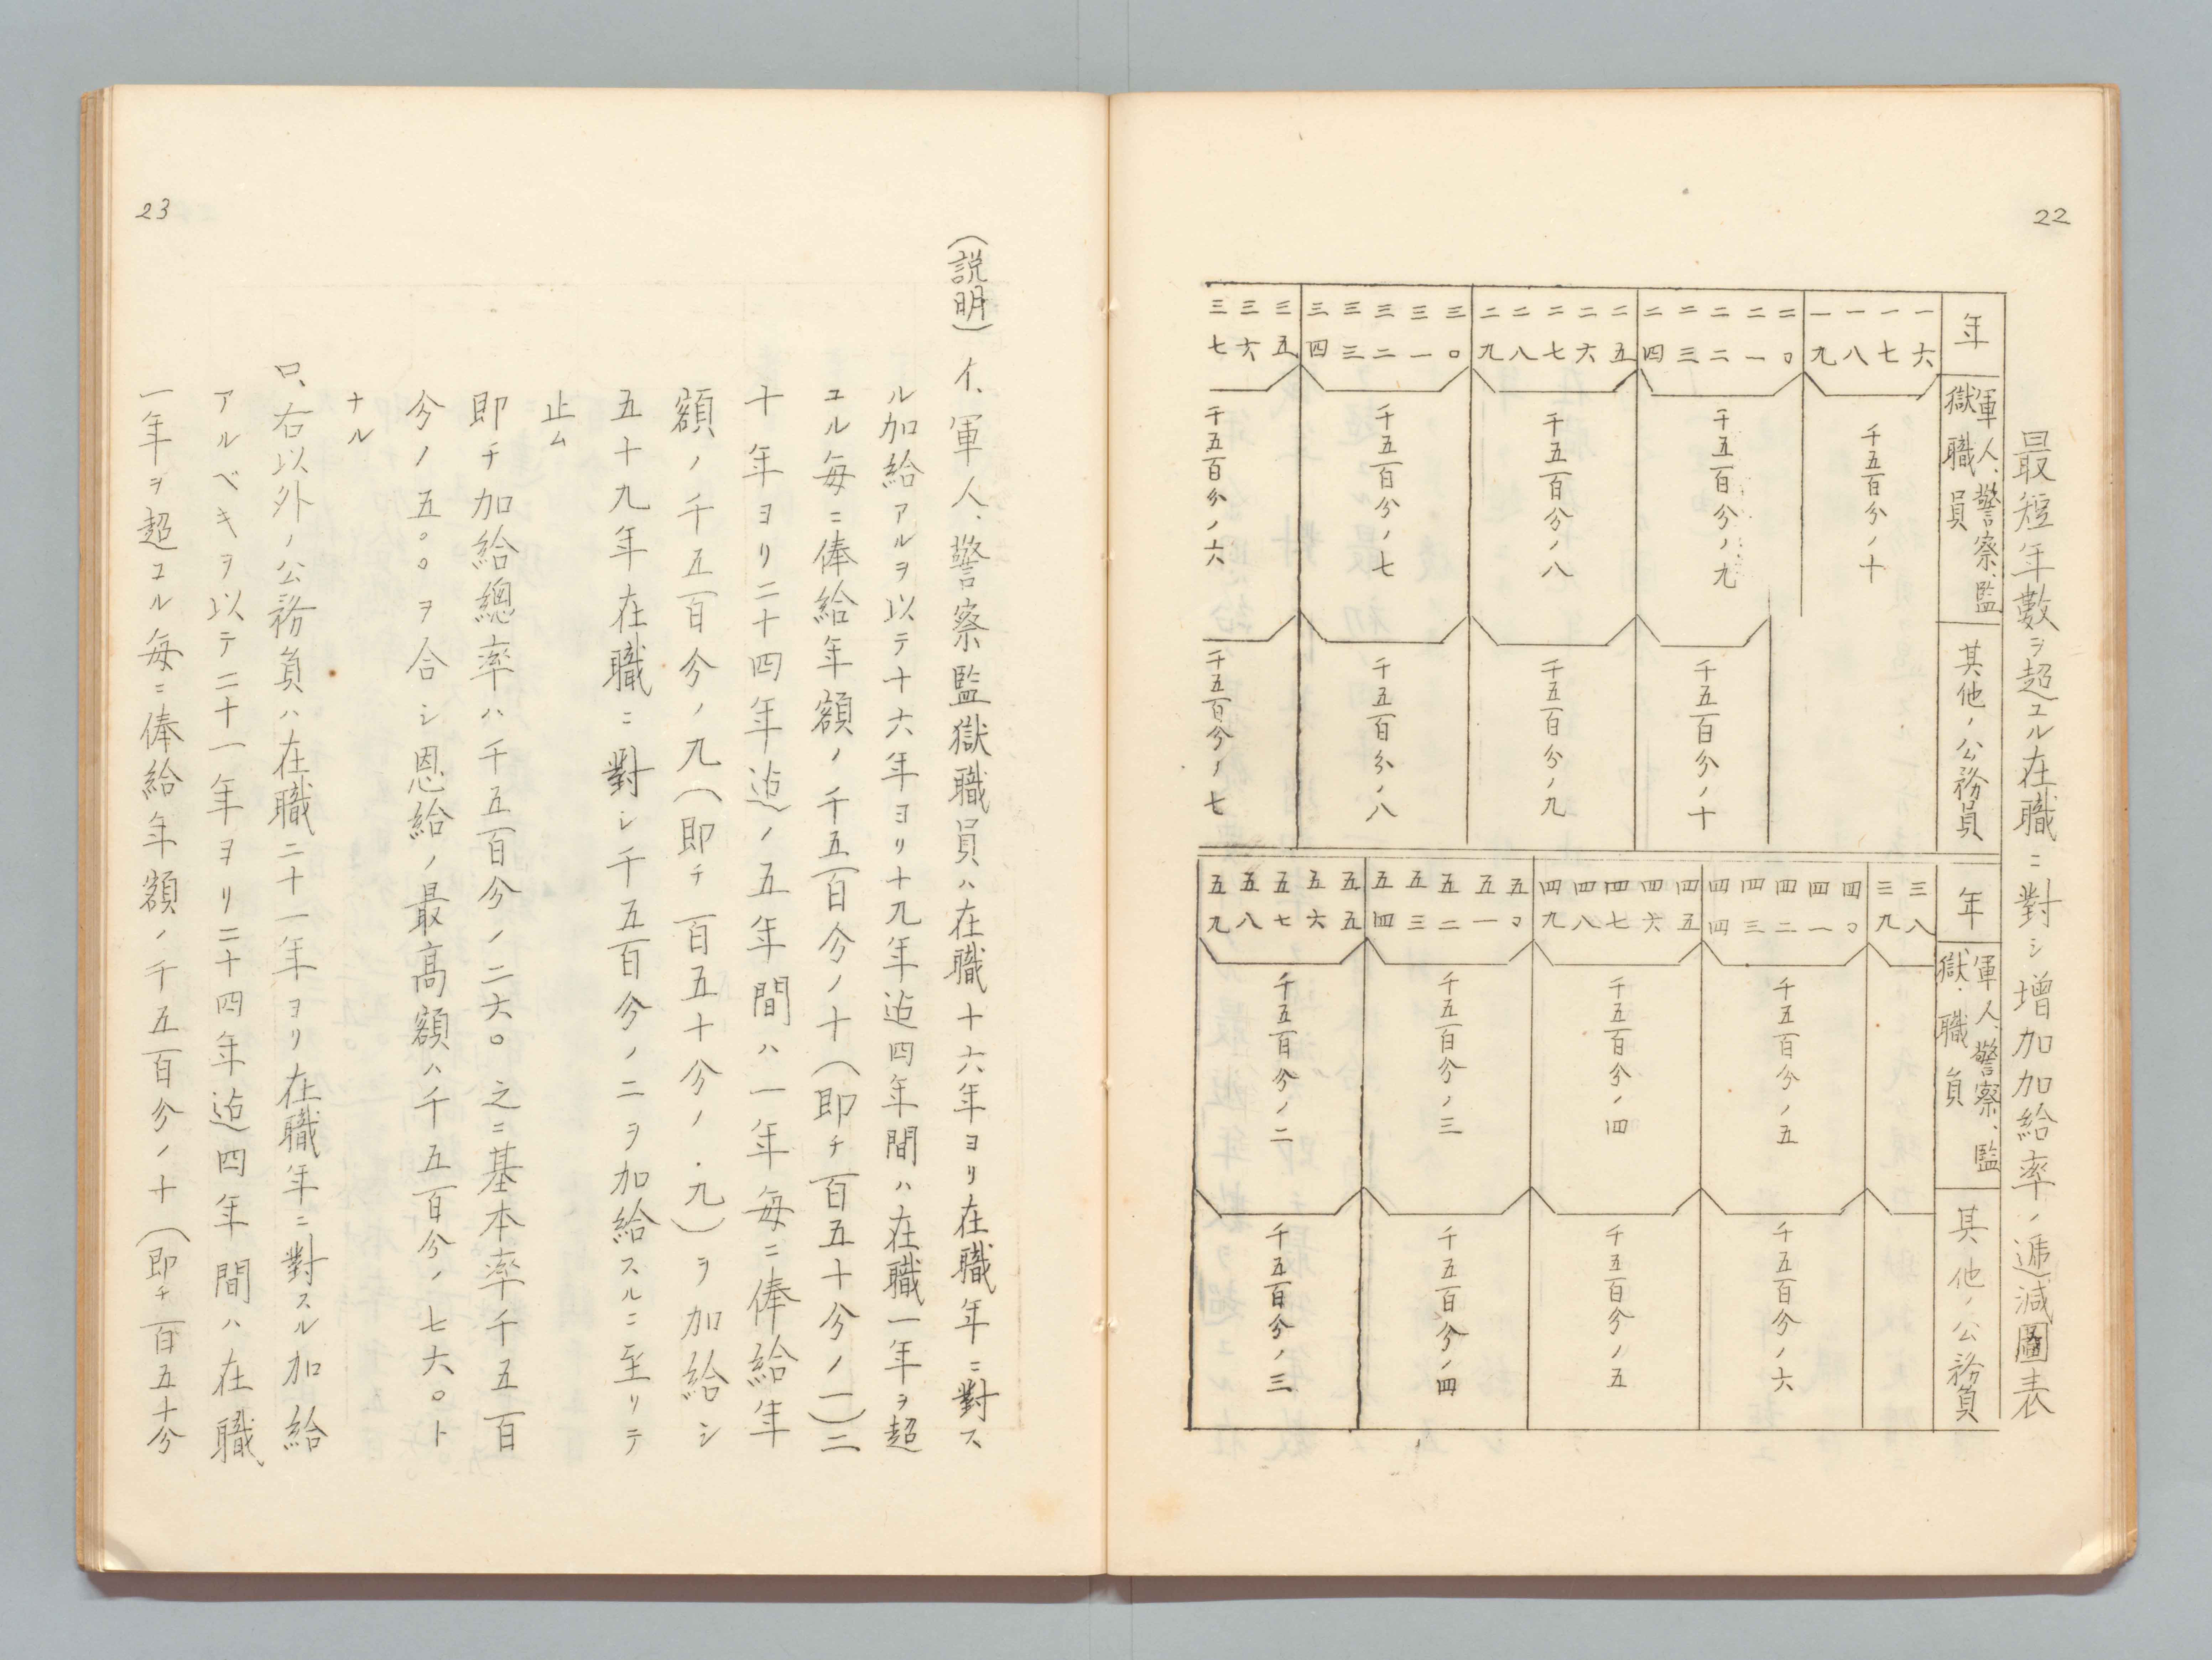 22
最短年數ヲ超ユル在職ニ對シ增加加給率ノ遞減圖表
年
一六 一七 一八 一九
二〇 二一 二二 二三 二四
二五 二六 二七 二八 二九
三〇 三一 三二 三三 三四
三五 三六 三七
軍人、警察、監
獄職員
千五百分ノ十
千五百分ノ九
千五百分ノ八
千五百分ノ七
千五百分ノ六
其他ノ公務員
千五百分ノ十
千五百分ノ九
千五百分ノ八
千五百分ノ七
年
三八 三九
四〇 四一 四二 四三 四四
四五 四六 四七 四八 四九
五〇 五一 五二 五三 五四
五五 五六 五七 五八 五九
軍人、警察、監
獄、職員
千五百分ノ五
千五百分ノ四
千五百分ノ三
千五百分ノ二
其他ノ公務員
千五百分ノ六
千五百分ノ五
千五百分ノ四
千五百分ノ三
(説明)イ、軍人、警察監獄職員ハ在職十六年ヨリ在職年ニ對ス
ル加給アルヲ以テ十六年ヨリ十九年迄四年間ハ在職一年ヲ超
ユル每ニ俸給年額ノ千五百分ノ十(即チ百五十分ノ一)二
十年ヨリ二十四年迄ノ五年間ハ一年每ニ俸給年
額ノ千五百分ノ九(即チ百五十分ノ.九)ヲ加給シ
五十九年在職ニ對シ千五百分ノ二ヲ加給スルニ至リテ
止ム
即チ加給總率ハ千五百分ノ二六〇之ニ基本率千五百
分ノ五〇〇ヲ合シ恩給ノ最高額ハ千五百分ノ七六〇ト
ナル
ロ、右以外ノ公務員ハ在職二十一年ヨリ在職年ニ對スル加給
アルベキヲ以テ二十一年ヨリ二十四年迄四年間ハ在職
一年ヲ超ユル每ニ俸給年額ノ千五百分ノ十(即チ百五十分
23